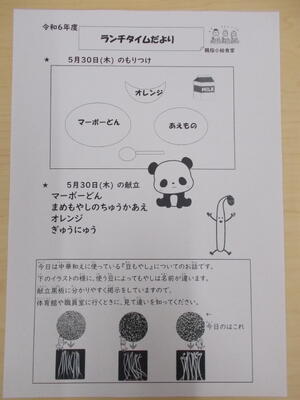 令和6年度
ランチタイムだより
★ 5月30日(木) のもりつけ
オレンジ
MILK
マーボーどん
あえもの
★ 5月30日(木) の献立
マーボーどん
まめもやしのちゅうかあえ
オレンジ
ぎゅうにゅう
今日は中華和えに使っている『豆もやし』についてのお話です。
下のイラストの様に、使う豆によってもやしは名前が違います。
献立黒板に分かりやすく掲示をしていますので、
体育館や職員室に行くときに、見て違いを知ってください。
←
今日のはこれ